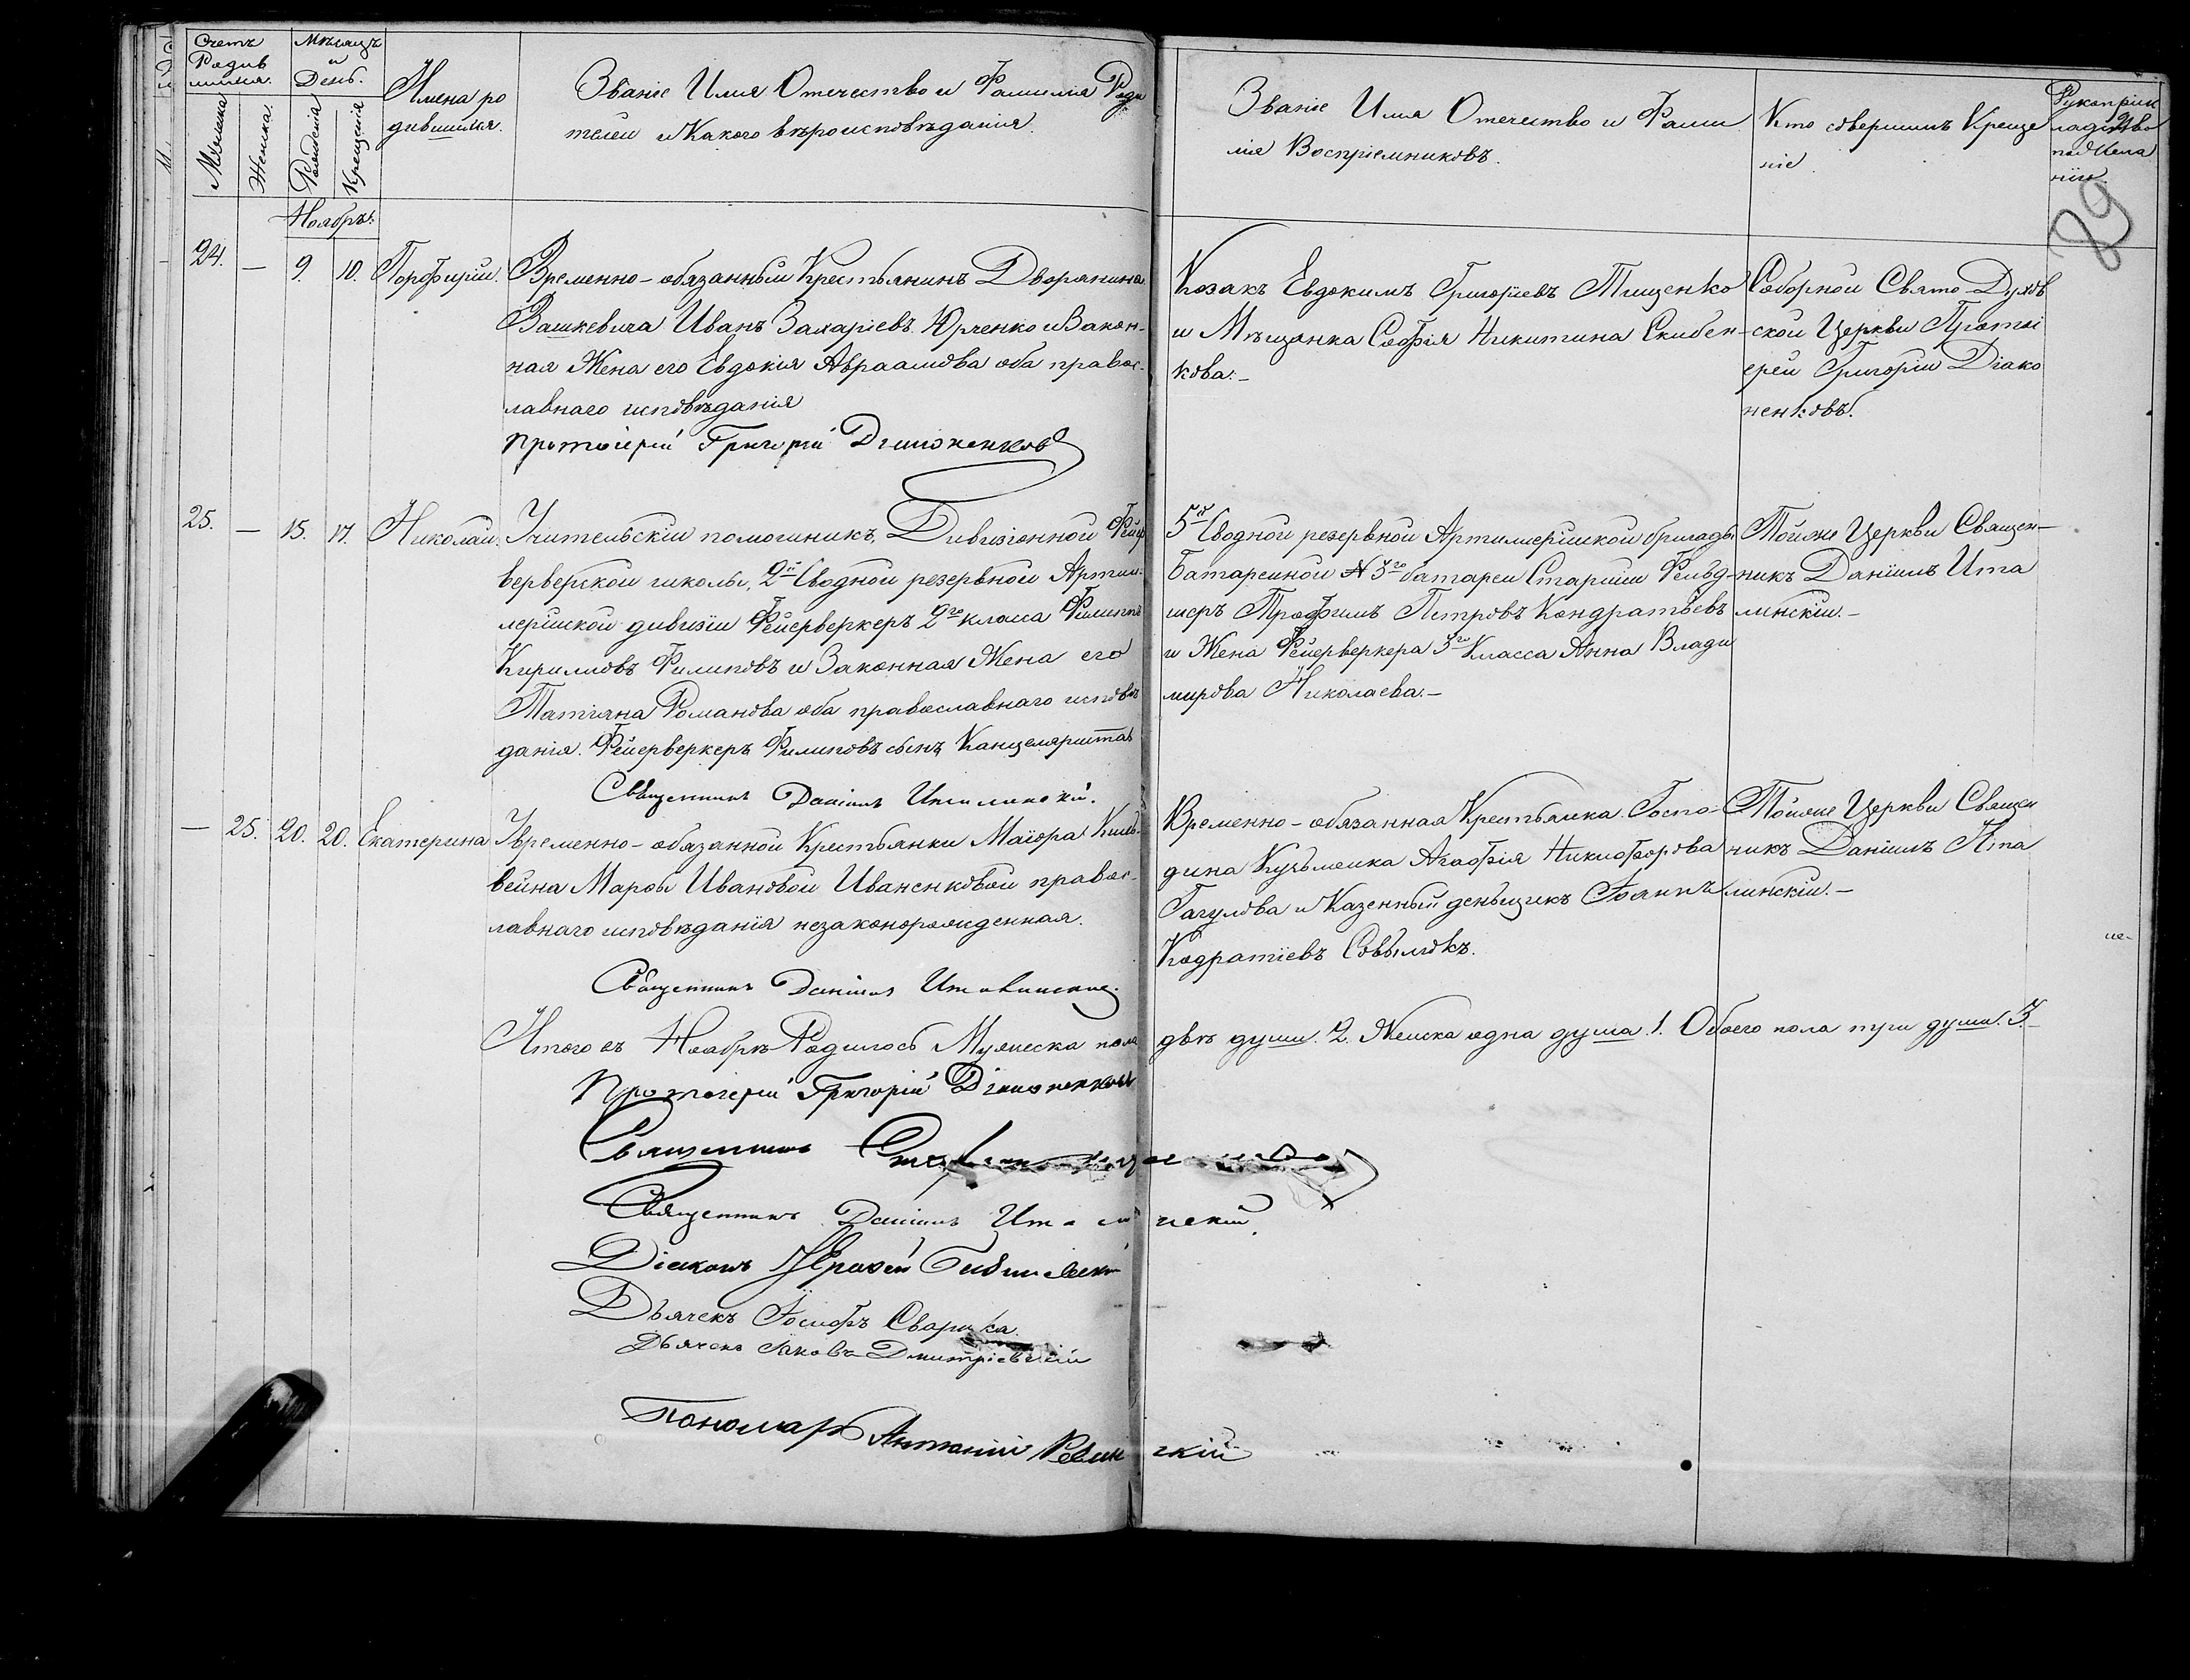 Счетъ
Родив
шихся.
Мужеска
Женска.
Мѣсяцъ
и
День.
Рожденія
Крещенія
Имена ро
дившихся.
Званіе Имя Отечество и Фамилія Роди
телей и Какого вѣроисповѣданія.
Званіе Имя Отечество и Фами
лія Воспріемниковъ.
Кто совершилъ Креще
ніе
Рукоприк
ладство
по Жела
нію.
89
Ноябрь.
24. — 9. 10. Порфирій.
Временно-обязанный Крестьянинъ Дворянина
Вашкевича Иванъ Захаріевъ Юрченко и Закон-
ная Жена его Евдокія Авраамова оба правос-
лавнаго исповѣданія
Протоіерей Григорій Діаконенковъ
Козакъ Евдокимъ Григоріевъ Тищенко
и Мѣщанка Софія Никитина Скибен-
кова.-
Соборной Свято Духов
ской Церкви Протоі
ерей Григорій Діако
ненковъ.
25. — 15. 17. Николай.
Учительскій помощникъ, Дивизіонной Фейер
верверской школы, 2й Сводной резервной Артил-
лерійской дивизіи Фейерверкеръ 2го класса Филиппъ
Кириловъ Филиповъ и Законная Жена его
Татіяна Романова оба православнаго исповѣ
данія. Фейерверкеръ Филиповъ сынъ Канцеляриста
Священникъ Даніилъ Италинскій.
5й Сводной резервной Артиллерійской бригады
Батарейной № 3го батареи Старшій Фельд-
шеръ Трофимъ Петровъ Кондратьевъ
и Жена Фейерверкера 3го Класса Анна Влади
мирова Николаева.-
Тойже Церкви Священ-
никъ Даніилъ Ита
линскій.-
— 25. 20. 20. Екатерина
У временно-обязанной Крестьянки Маіора
Марѳы Ивановой Иваненковой правос-
лавнаго исповѣданія незаконорожденная.
Священникъ Даніилъ Италинскій.
Временно-обязанная Крестьянка Госпо-
дина Кузьменка Агафія Никифорова
Гагулова и Казенный деньщикъ Іоаннъ
Кодратіевъ Совылокъ.
Тойже Церкви Священ
никъ Даніилъ Ита
линскій.-
Итого въ Ноябрѣ Родилось Мужеска пола двѣ души. 2. Женска одна душа. 1. Обоего пола три души. 3.
Протоіерей Григорій Діаконенковъ
Священникъ
Священникъ Даніилъ Италинскій.
Діаконъ
Дьячекъ Іосифъ Сварика.
Дьячекъ Іаковъ Дмитріевскій
Пономарь Антоній Ревинскій